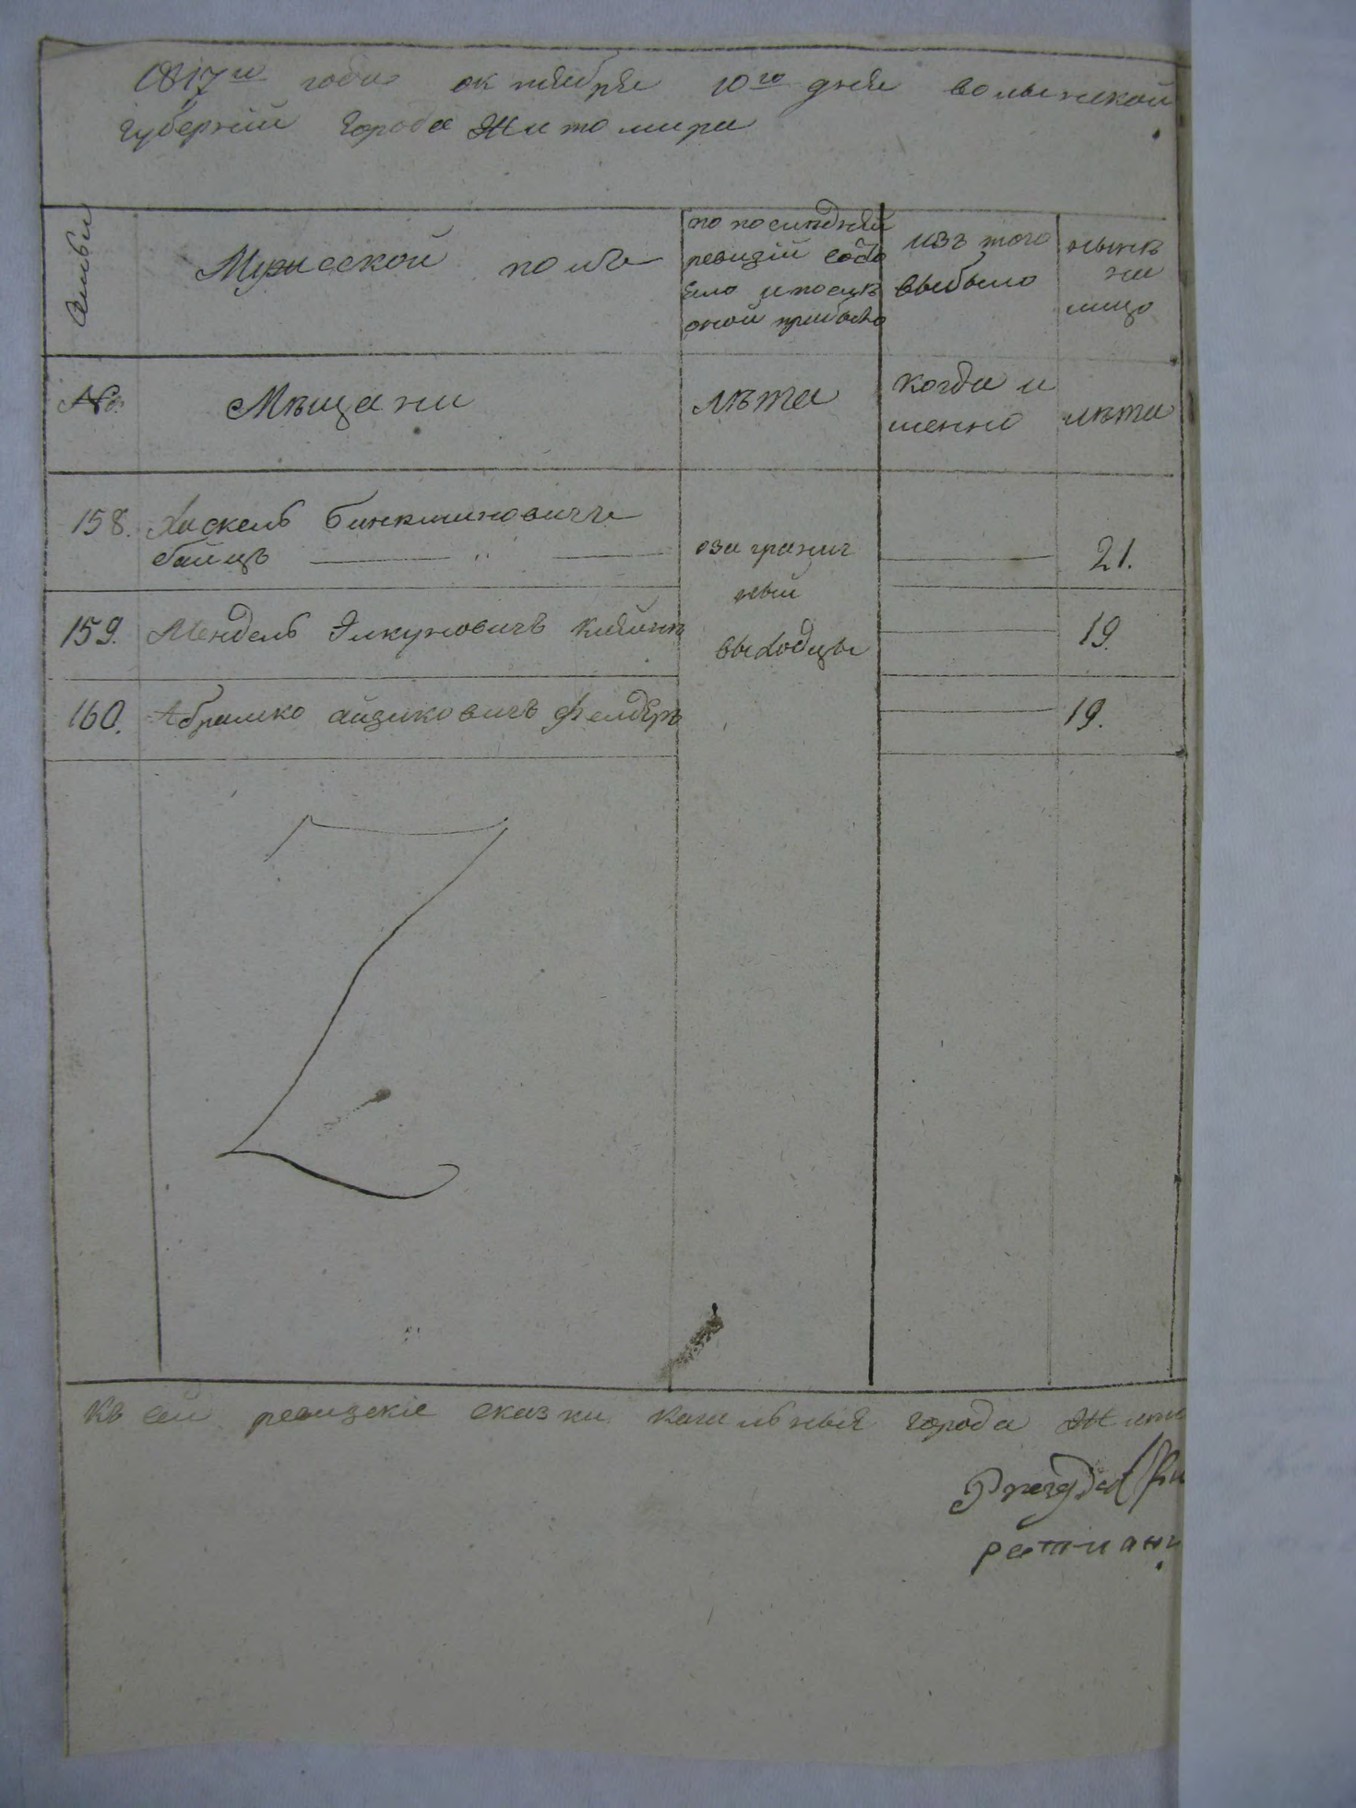 1817го года октября 10го дня волынской
губернiй города Житомира
Семьи
Мужеской полъ
по последней
ревизiй состо
яло и после
оной прибыло
изъ того
выбыло
ныне
на
лицо
№.
Мѣщани
лѣта
когда и
менно
лѣта
158. Хаскель Бинюминовичъ
21.
заранич
ный
159. Мендель Элкуновичъ
выходцы
19.
160. Абрамко айзиковичъ Фелдеръ
19.
Къ сей ревизскiе сказки кагальныя города Жито